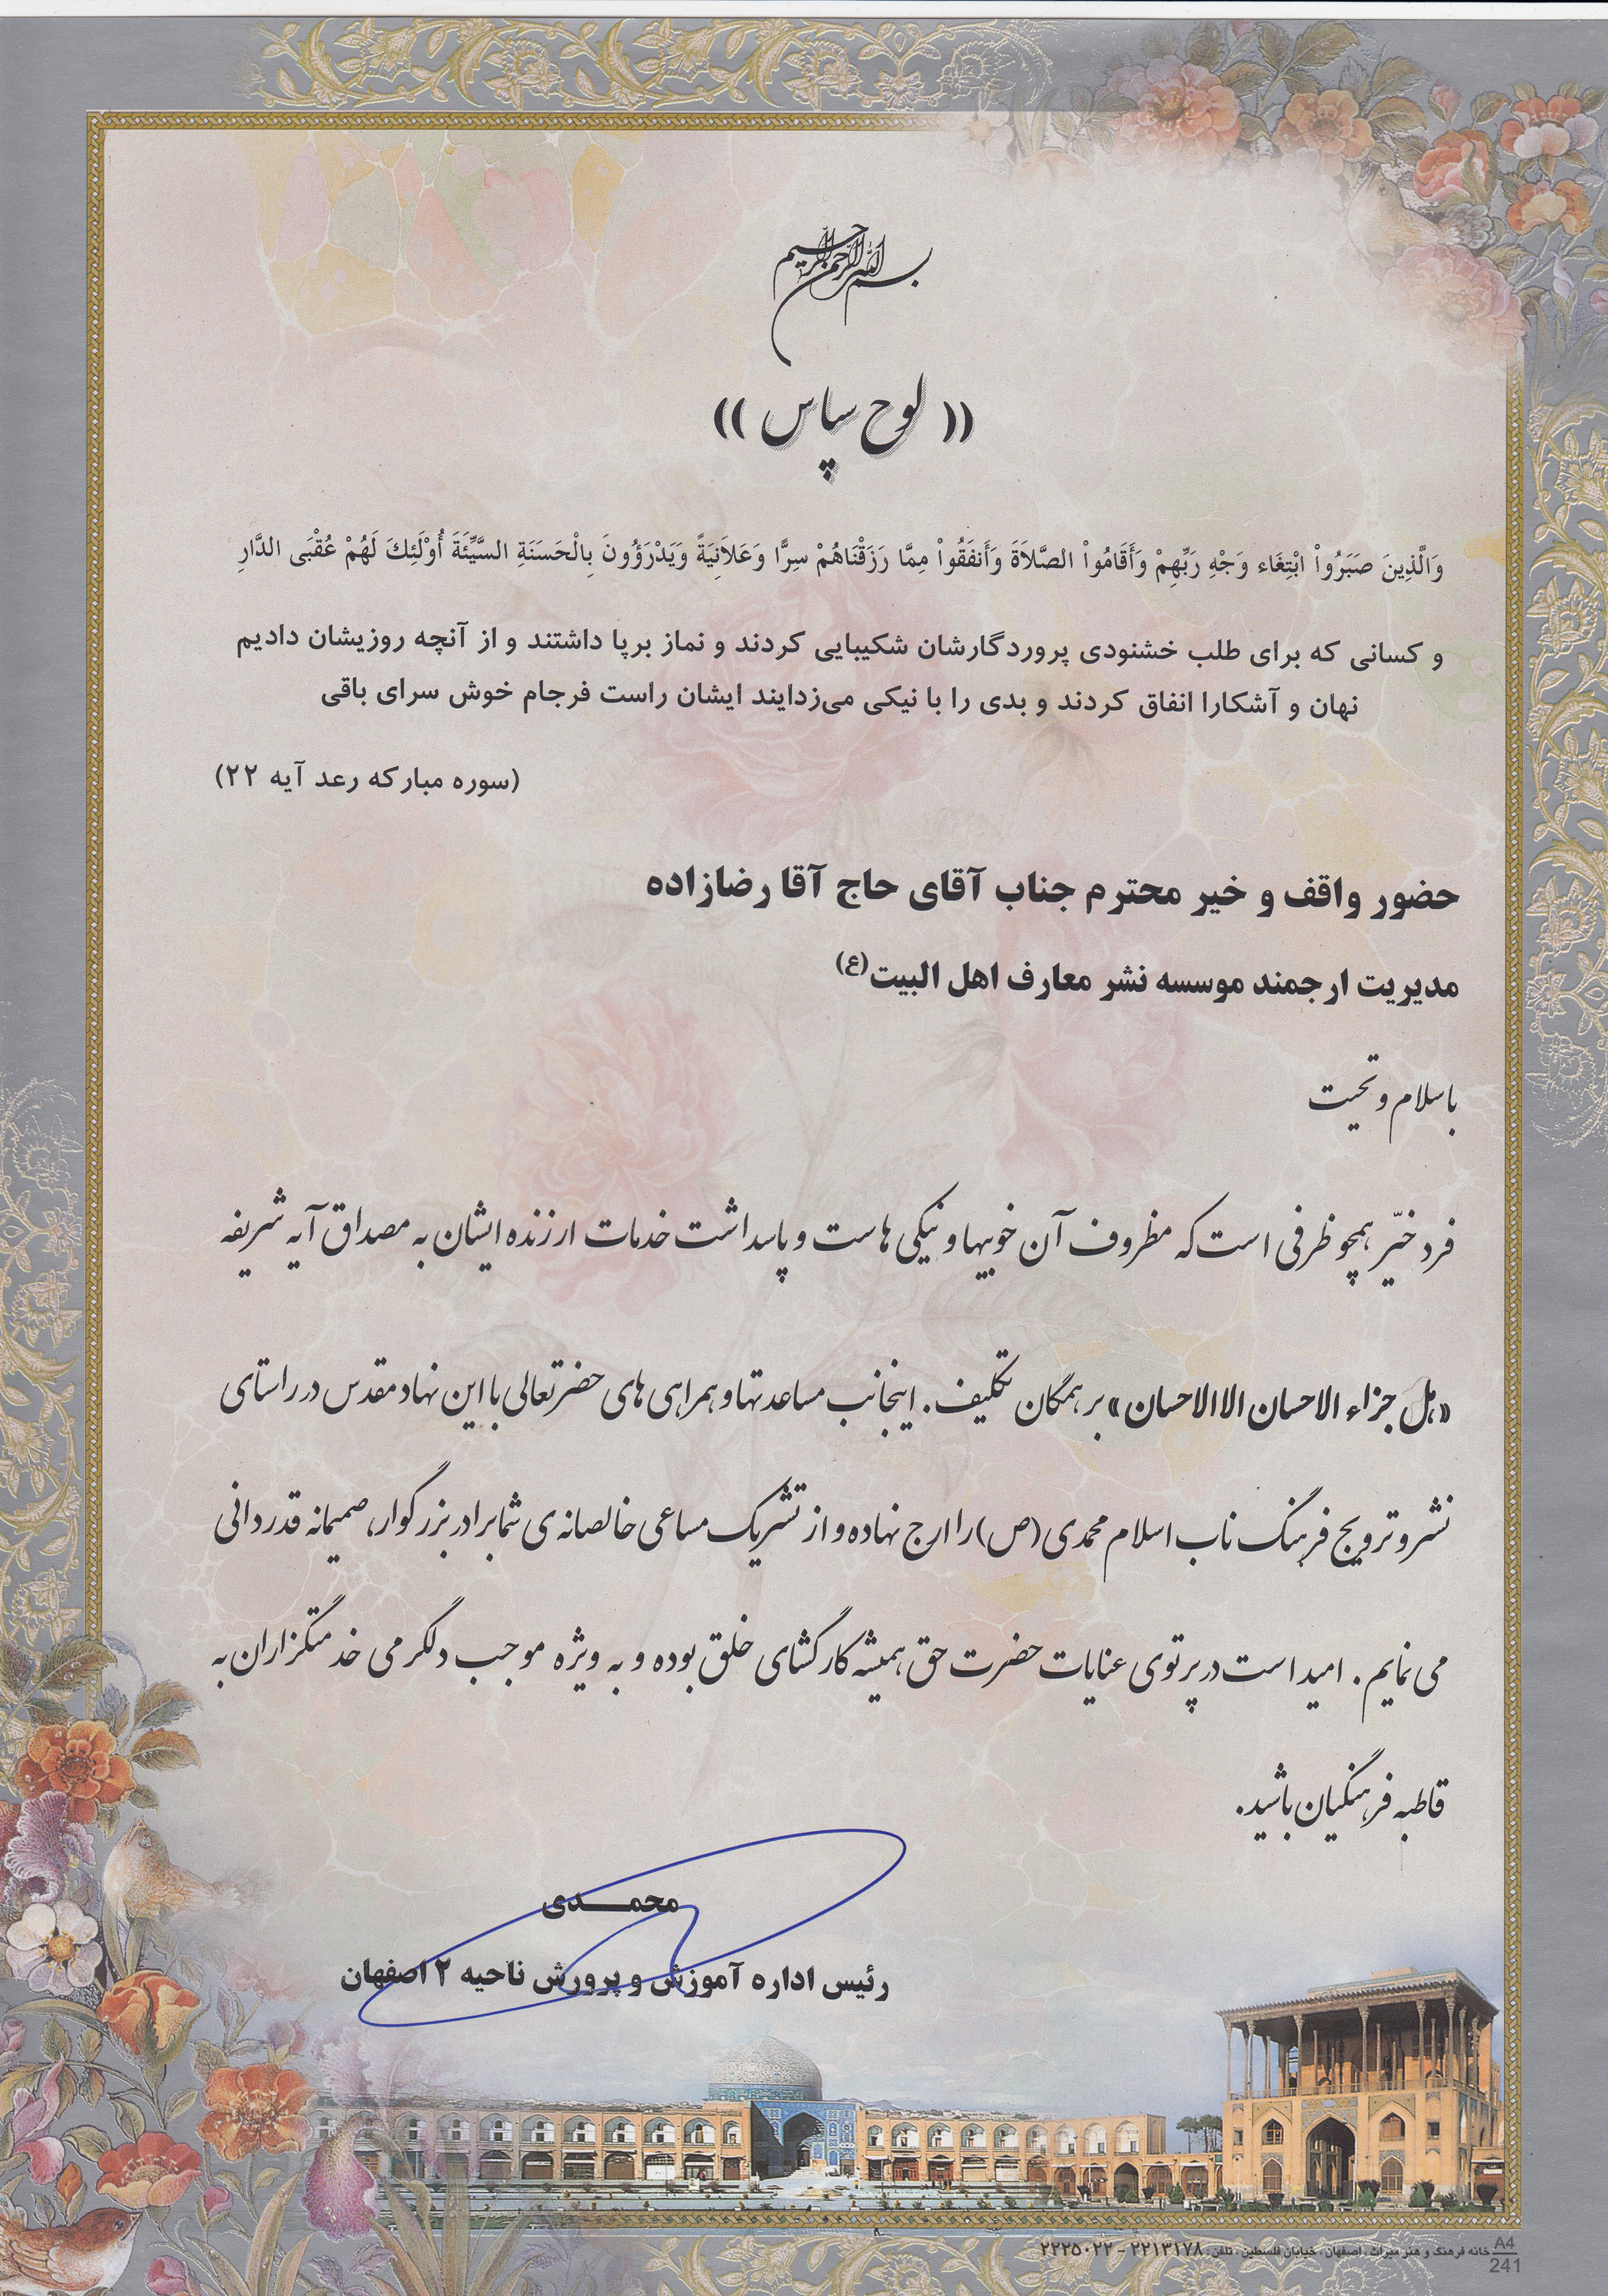 بسم الله الرحمن الرحیم
(( لوح سپاس ))
وَالَّذِينَ صَبَرُواْ ابْتِغَاء وَجْهِ رَبِّهِمْ وَأَقَامُواْ الصَّلاَةَ وَأَنفَقُواْ مِمَّا رَزَقْنَاهُمْ سِرًّا وَعَلاَنِيَةً وَيَدْرَؤُونَ بِالْحَسَنَةِ السَّيِّئَةَ أُوْلَئِكَ لَهُمْ عُقْبَى الدَّارِ
و کسانی که برای طلب خشنودی پروردگارشان شکیبایی کردند و نماز برپا داشتند و از آنچه روزیشان دادیم
نهان و آشکارا انفاق کردند و بدی را با نیکی می‌زدایند ایشان راست فرجام خوش سرای باقی
(سوره مبارکه رعد آیه ۲۲)
حضور واقف و خیر محترم جناب آقای حاج آقا رضازاده
مدیریت ارجمند موسسه نشر معارف اهل البیت(ع)
باسلام و تحیت
فرد خیّر همچو ظرفی است که مظروف آن خوبیها و نیکی هاست و پاسداشت خدمات ارزنده ایشان به مصداق آیه شریفه
«هل جزاء الاحسان الا الاحسان» بر همگان تکلیف. اینجانب مساعدتها و همراهی های حضرتعالی با این نهاد مقدس در راستای
نشر و ترویج فرهنگ ناب اسلام محمدی (ص) را ارج نهاده و از تشریک مساعی خالصانه ی شما برادر بزرگوار، صمیمانه قدردانی
می نمایم. امید است در پرتوی عنایات حضرت حق، همیشه کارگشای خلق بوده و به ویژه موجب دلگرمی خدمتگزاران به
قاطبه فرهنگیان باشید.
محمـــدی
رئیس اداره آموزش و پرورش ناحیه ۲ اصفهان
خانه فرهنگ و هنر میراث ، اصفهان ، خیابان فلسطین ، تلفن : ۲۲۱۳۱۷۸ - ۲۲۲۵۰۲۲
A4
241